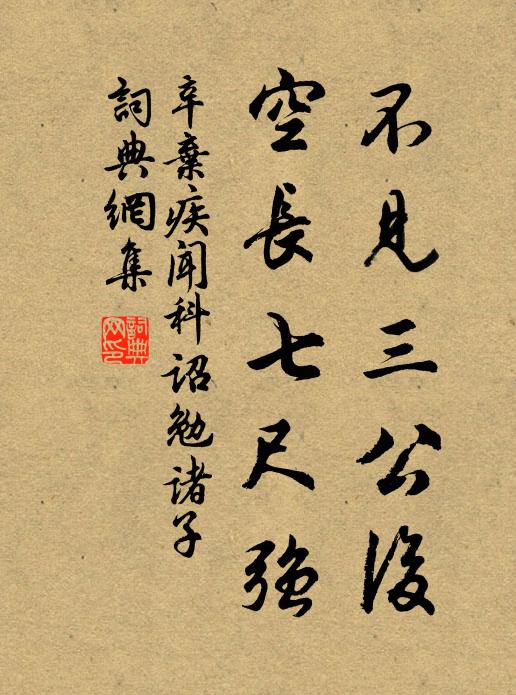 不見三公後
空長七尺強
辛棄疾聞科詔勉諸子
詞典網集
詞典网印